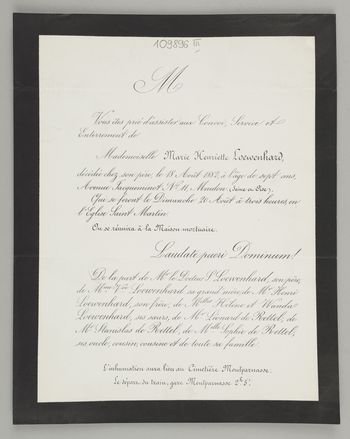 109896 III
M
Vous êtes prié d'assister aux Convoi, Service et
Enterrement de
Mademoiselle Marie Henriette Loewenhard,
décédée chez son père, le 18 Août 1882, à l'âge de sept ans,
Avenue Jacqueminot N° 11, Meudon (Seine & Oise).
Qui se feront le Dimanche 20 Août à trois heures, en
l'Église Saint Martin.
On se réunira à la Maison mortuaire.
Laudate pueri Dominum!
De la part de Mr le Docteur Loewenhard, son père,
de Mme Vve Loewenhard sa grand'mère, de Mr Henri
Loewenhard, son frère, de Mlles Hélène et Wanda
Loewenhard, ses sœurs, de Mr Léonard de Rettel, de
Mr Stanislas de Rettel, de Mlle Sophie de Rettel,
ses oncle, cousin, cousine et de toute sa famille.
L'inhumation aura lieu au Cimetière Montparnasse.
Le départ du train, gare Montparnasse 2h 5'.